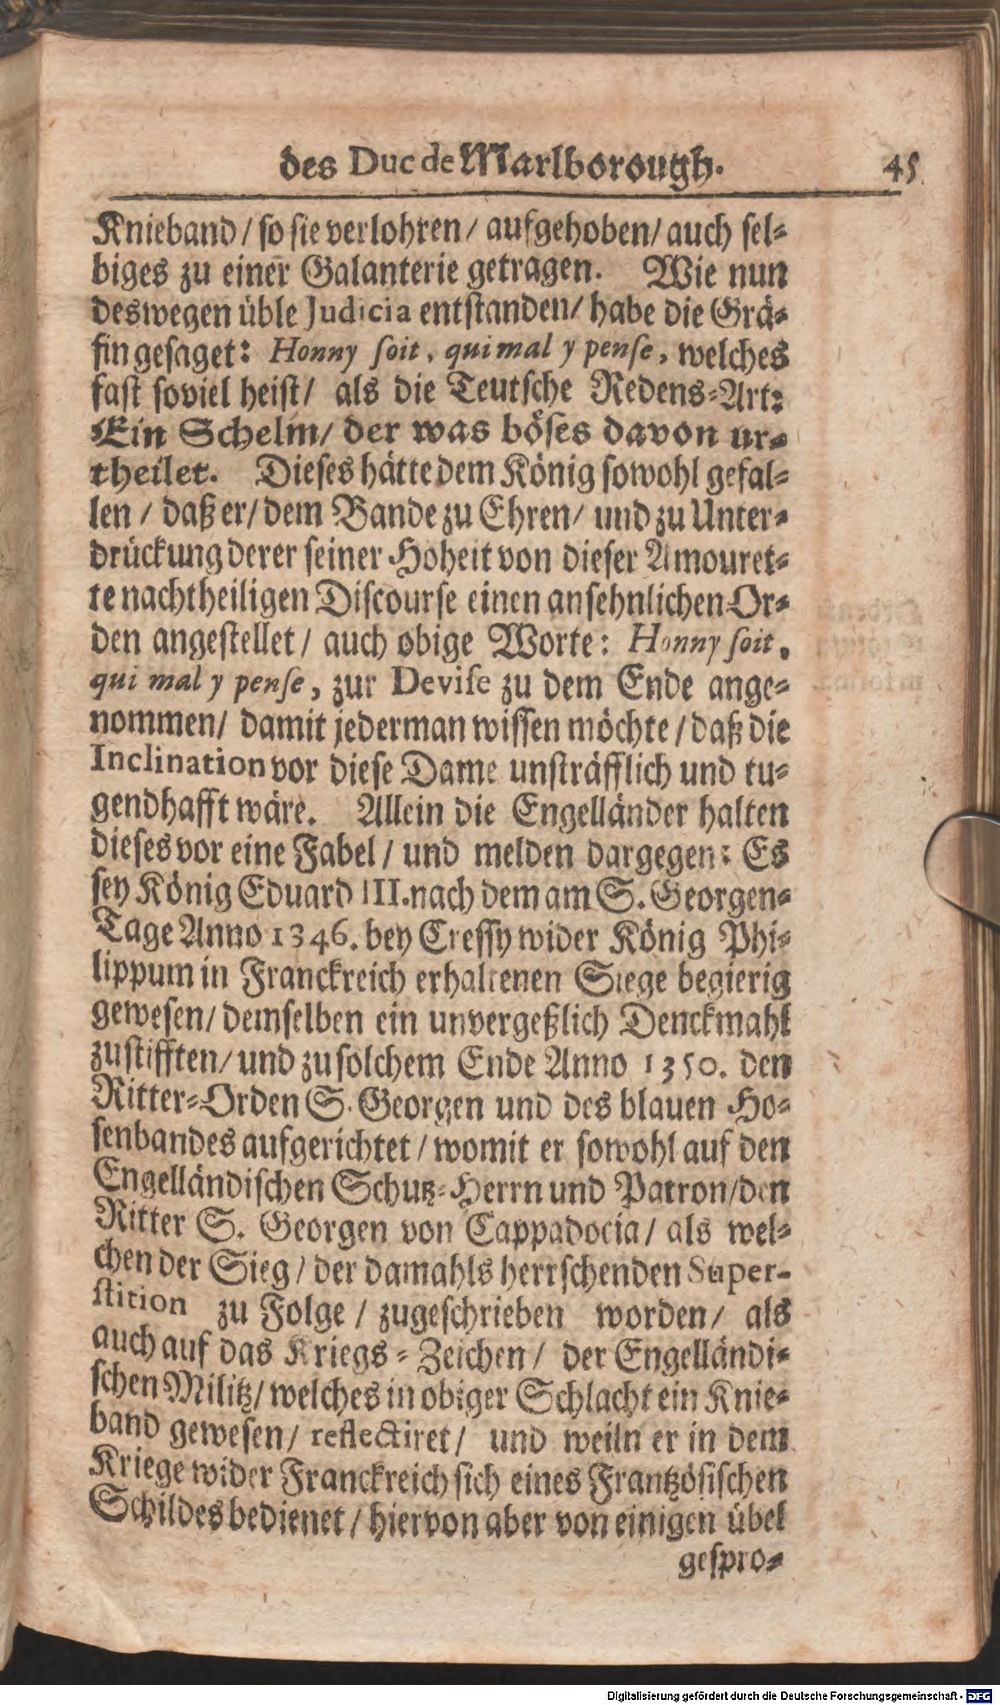 des Duc de Marlborough. 45
Knieband / so sie verlohren / aufgehoben / auch sel-
biges zu einer Galanterie getragen. Wie nun
deswegen üble Judicia entstanden / habe die Grä-
fin gesaget: Honny soit, qui mal y pense, welches
fast soviel heist / als die Teutsche Redens-Art:
Ein Schelm / der was böses davon ur-
theilet. Dieses hätte dem König sowohl gefal-
len / daß er / dem Bande zu Ehren / und zu Unter-
drückung derer seiner Hoheit von dieser Amouret-
te nachtheiligen Discourse einen ansehnlichen Or-
den angestellet / auch obige Worte: Honny soit,
qui mal y pense, zur Devise zu dem Ende ange-
nommen / damit jederman wissen möchte / daß die
Inclination vor diese Dame unsträfflich und tu-
gendhafft wäre. Allein die Engelländer halten
dieses vor eine Fabel / und melden dargegen: Es
sey König Eduard III. nach dem am S. Georgen-
Tage Anno 1346. bey Cressy wider König Phi-
lippum in Franckreich erhaltenen Siege begierig
gewesen / demselben ein unvergeßlich Denckmahl
zu stifften / und zu solchem Ende Anno 1350. den
Ritter-Orden S. Georgen und des blauen Ho-
senbandes aufgerichtet / womit er sowohl auf den
Engelländischen Schutz-Herrn und Patron / den
Ritter S. Georgen von Cappadocia / als wel-
chen der Sieg / der damahls herrschenden Super-
stition zu Folge / zugeschrieben worden / als
auch auf das Kriegs-Zeichen / der Engelländi-
schen Militz / welches in obiger Schlacht ein Knie-
band gewesen / reflectiret / und weiln er in dem
Kriege wider Franckreich sich eines Frantzösischen
Schildes bedienet / hiervon aber von einigen übel
gespro-
Digitalisierung gefördert durch die Deutsche Forschungsgemeinschaft - DFG